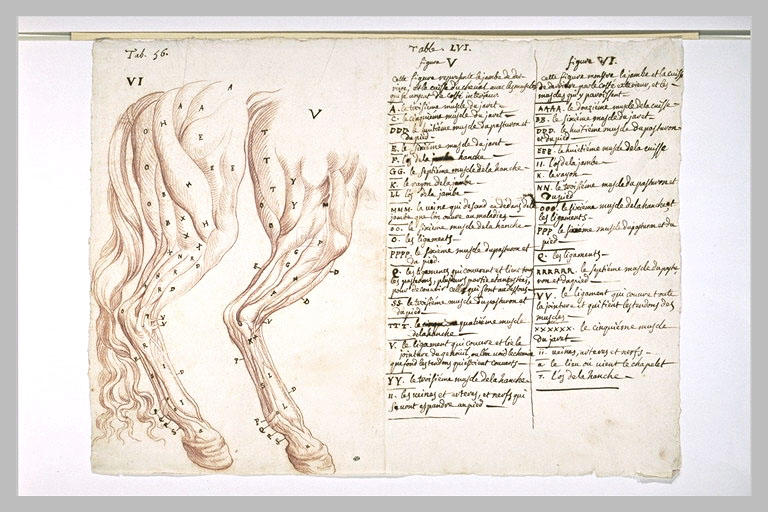 Tab. 56.
VI
V
Table. LVI.
figure V
Cette figure represente la jambe de der-
riere, de la cuisse du cheval avec les muscles
qui se voyent du costé interieur
A. le troisiesme muscle du jaret
C. le cinquiesme muscle du jaret
DDD. le huitiesme muscle du pasturon et
du pied
E. le sixiesme muscle du jaret
F. l'os de la hanche
GG. le septiesme muscle de la hanche
K. le rayon de la jambe
LL l'os de la jambe
MMM. la veine qui descend au dedans de la
jambe que l'on ouvre au maladies
oo. le sixiesme muscle de la hanche
O. les ligaments
PPPP. le sixiesme muscle du pasturon et
du pied
Q. les ligaments qui couvrent et lient tous
SS. le troisiesme muscle du pasturon et
du pied
TTT. le quatriesme muscle
de la hanche
V. le ligament qui couvre et lie la
YY. le troisiesme muscle de la hanche
ii. les veines et arteres, et nerfs qui
se vont espandre au pied
figure VI.
Cette figure monstre la jambe et la cuisse
de derriere par le costé exterieur, et les
muscles qui y paroissent
AAAA. le onziesme muscle de la cuisse
BB. le sixiesme muscle du jaret
DDD. le huitiesme muscle du pasturon
et du pied
EEE. le huitiesme muscle de la cuisse
II. l'os de la jambe
K. le rayon
NN. le troisiesme muscle du pasturon et
du pied
OOO. le sixiesme muscle de la hanche et
les ligaments
PPP. le sixiesme muscle du pasturon et du
pied
Q. les ligaments
RRRRRR. le septiesme muscle du pastu
ron et du pied
VV. le ligament qui couvre et lie
la jointure et qui tient les tendons des
muscles
xxxxxx. le cinquiesme muscle
du jaret
ii. veines, arteres et nerfs
a. le lieu où vient le chapelet
7. l'os de la hanche